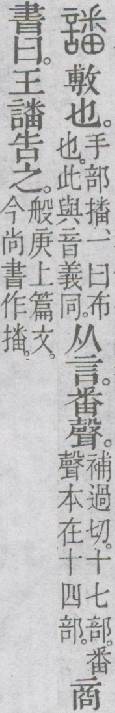 譒敷也。手部播、一曰布也。此與音義同。从言。番聲。補過切。十七部。番聲本在十四部。商
書曰。王譒告之。般庚上篇文。今尚書作播。